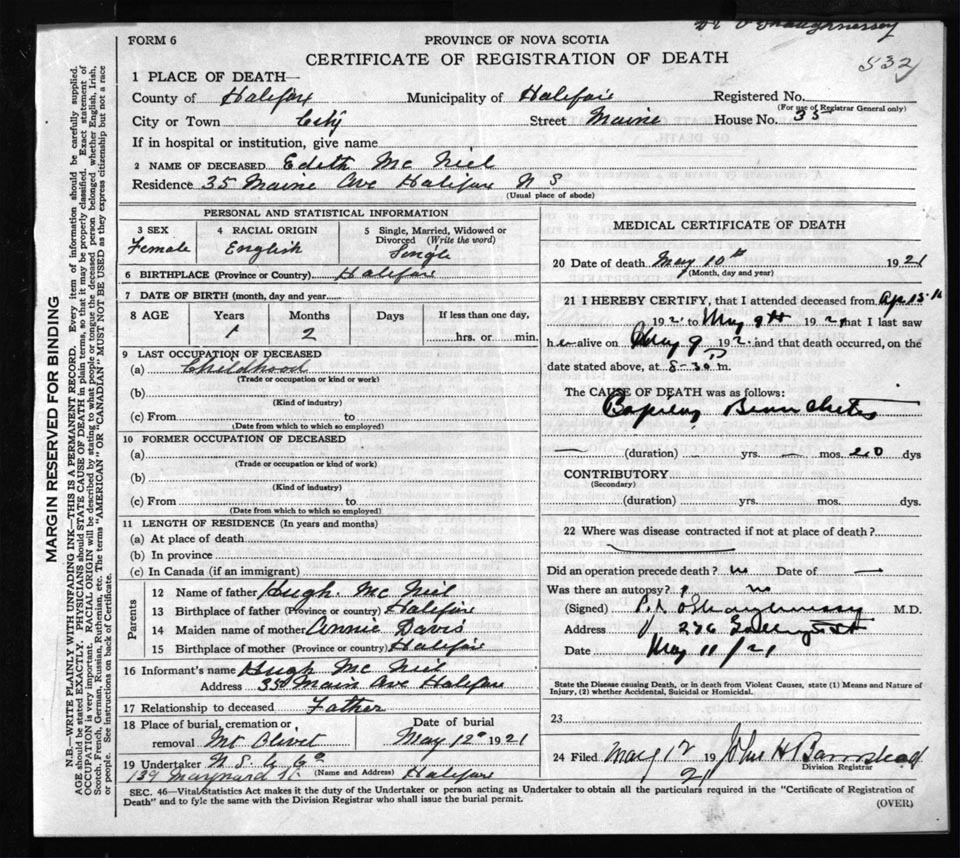 Dr O'Shaughnessy
532
FORM 6
PROVINCE OF NOVA SCOTIA
CERTIFICATE OF REGISTRATION OF DEATH
1 PLACE OF DEATH—
County of Halifax Municipality of Halifax Registered No.
(For use of Registrar General only)
City or Town City Street Maine House No. 35
If in hospital or institution, give name
2 NAME OF DECEASED Edith Mc Niel
Residence 35 Maine Ave Halifax N S
(Usual place of abode)
PERSONAL AND STATISTICAL INFORMATION
3 SEX 4 RACIAL ORIGIN 5 Single, Married, Widowed or Divorced (Write the word)
Female English Single
6 BIRTHPLACE (Province or Country) Halifax
7 DATE OF BIRTH (month, day and year)
8 AGE Years Months Days If less than one day,
1 2 hrs. or min.
9 LAST OCCUPATION OF DECEASED
(a) Childhood
(Trade or occupation or kind or work)
(b)
(Kind of industry)
(c) From to
(Date from which to which so employed)
10 FORMER OCCUPATION OF DECEASED
(a)
(Trade or occupation or kind of work)
(b)
(Kind of industry)
(c) From to
(Date from which to which so employed)
11 LENGTH OF RESIDENCE (In years and months)
(a) At place of death
(b) In province
(c) In Canada (if an immigrant)
Parents
12 Name of father Hugh. Mc Niel
13 Birthplace of father (Province or country) Halifax
14 Maiden name of mother Annie Davis
15 Birthplace of mother (Province or country) Halifax
16 Informant's name Hugh Mc Niel
Address 35 Main Ave Halifax
17 Relationship to deceased Father
18 Place of burial, cremation or removal Mt Olivet
Date of burial May 12 1921
19 Undertaker N. S. U. Co
(Name and Address)
139 Maynard St. Halifax
MEDICAL CERTIFICATE OF DEATH
20 Date of death May 10th 1921
(Month, day and year)
21 I HEREBY CERTIFY, that I attended deceased from Apr 15-
192 to May 9th 1921 that I last saw
her alive on May 9 192 and that death occurred, on the
date stated above, at 8-30 P m.
The CAUSE OF DEATH was as follows:
(duration) yrs. mos. dys
CONTRIBUTORY
(Secondary)
(duration) yrs. mos. dys.
22 Where was disease contracted if not at place of death?
Did an operation precede death? no Date of —
Was there an autopsy? no
(Signed) O'Shaughnessy M.D.
Address
Date May 11/21
State the Disease causing Death, or in death from Violent Causes, state (1) Means and Nature of Injury, (2) whether Accidental, Suicidal or Homicidal.
23
24 Filed May 12 1921 John H Barnstead
Division Registrar
SEC. 46—Vital Statistics Act makes it the duty of the Undertaker or person acting as Undertaker to obtain all the particulars required in the "Certificate of Registration of
Death" and to fyle the same with the Division Registrar who shall issue the burial permit.
(OVER)
MARGIN RESERVED FOR BINDING
N.B.—WRITE PLAINLY WITH UNFADING INK—THIS IS A PERMANENT RECORD. Every item of information should be carefully supplied.
AGE should be stated EXACTLY. PHYSICIANS should STATE CAUSE OF DEATH in plain terms, so that it may be properly classified. Exact statement of
OCCUPATION is very important. RACIAL ORIGIN will be described by stating to what people or tongue the deceased person belonged whether English, Irish,
Scotch, French, German, Russian, Ruthenian, etc. The terms "AMERICAN" OR "CANADIAN" MUST NOT BE USED as they express citizenship but not a race
or people. See instructions on back of Certificate.